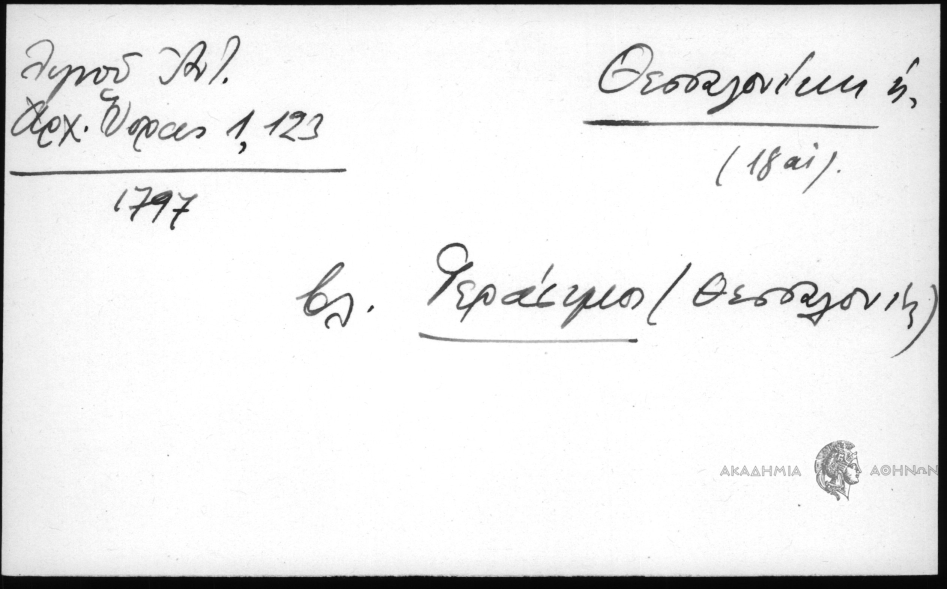 Λιγνοῦ Ἀντ.
Ἀρχ. Ὕδρας 1, 123
1797
Θεσσαλονίκη ἡ,
(18 αἰ).
βλ. Γεράσιμος (Θεσσαλονίκης)
ΑΚΑΔΗΜΙΑ ΑΘΗΝΩΝ